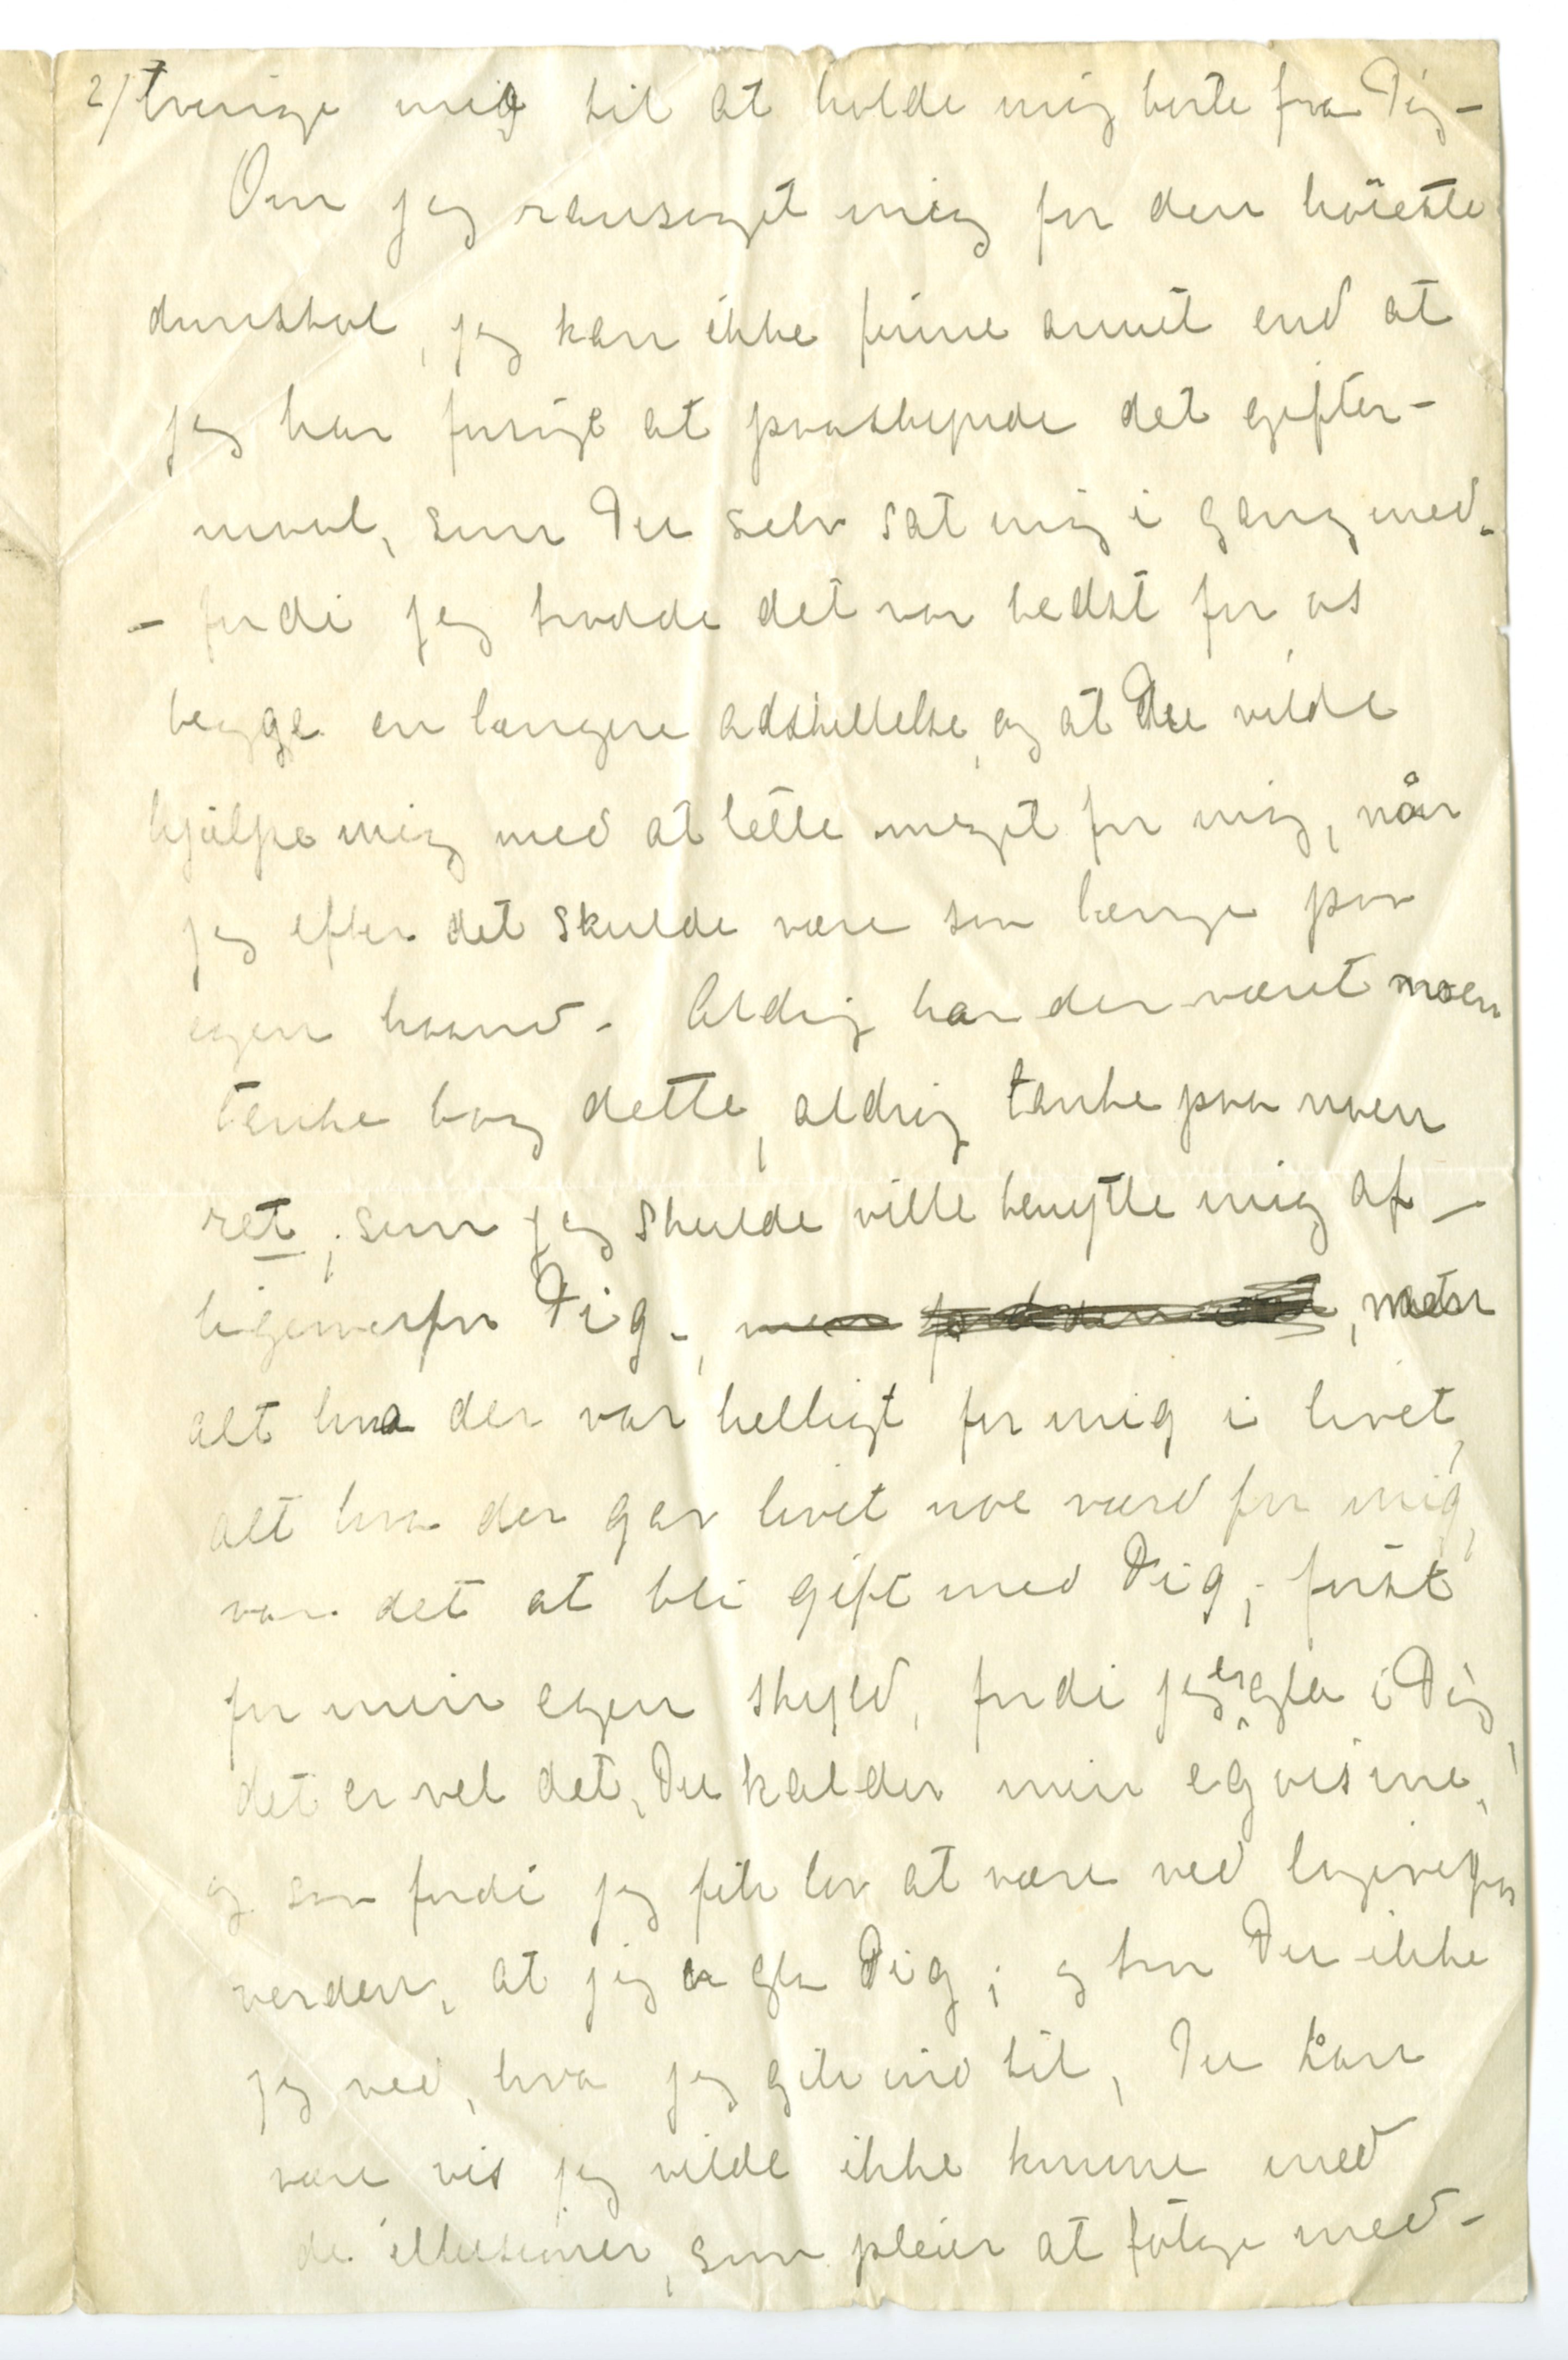 2/ tvinge mig til at holde mig borte fra Dig –
Om jeg ransaget mig for den høieste
domstol, jeg kan ikke finne annet end at
jeg har forsøgt at paaskynde det gifter-
maal, som Du selv sat mig i gang med.
– fordi jeg trodde det var bedst for os
begge en længere adskillelse, og at Du vilde
hjälpe mig med at lette meget for mig, når
jeg efter det skulde være saa længe paa
egen haand – Aldrig har der været noen
tanke bag dette, aldrig tanke paa noen
ret, som jeg skulde ville benytte mig af –
ligeoverfor Dig –, men, men
alt hva der var helligt for mig i livet,
alt hva der gav livet noe værd for mig,
var det at bli gift med Dig; först
for min egen skyld, fordi jeg er gla i Dig,
det er vel det, Du kalder min egoisme,
og saa fordi jeg fik lov at være ved
verden, at jeg er gla Dig; og tro Du ikke
jeg ved, hva jeg gik ind til, Du kan
være vis jeg vilde ikke komme med
de illusioner, som pleier at følge med –